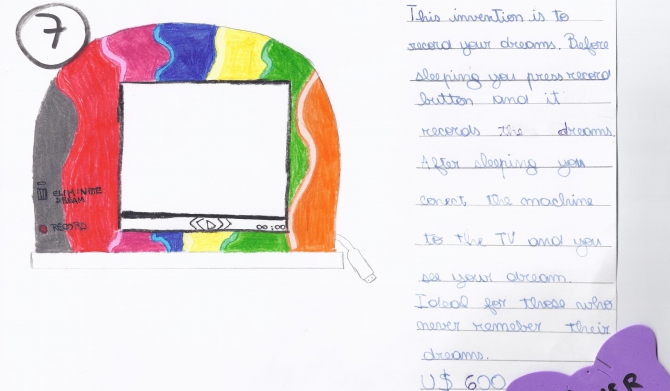 7
ELIMINATE
DREAM
RECORD
00:00
This invention is to
record your dreams. Before
sleeping you press record
button and it
records the dreams.
After sleeping you
conect the machine
to the TV and you
see your dream.
Ideal for those who
never remeber their
dreams.
U$ 600